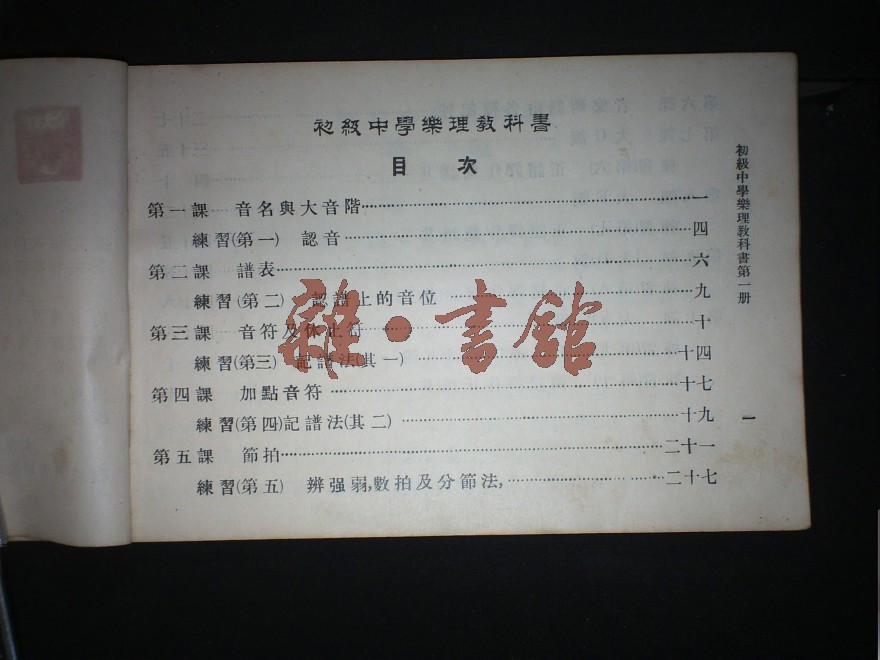 初級中學樂理教科書
目 次
第一課 音名與大音階……一
練習(第一) 認音……四
第二課 譜表……六
練習(第二) 認譜上的音位……九
第三課 音符及休止符……十
練習(第三) 記譜法(其一)……十四
第四課 加點音符……十七
練習(第四)記譜法(其二)……十九
第五課 節拍……二十一
練習(第五) 辨强弱,數拍及分節法,……二十七
初級中學樂理教科書第一册
一
雜·書館